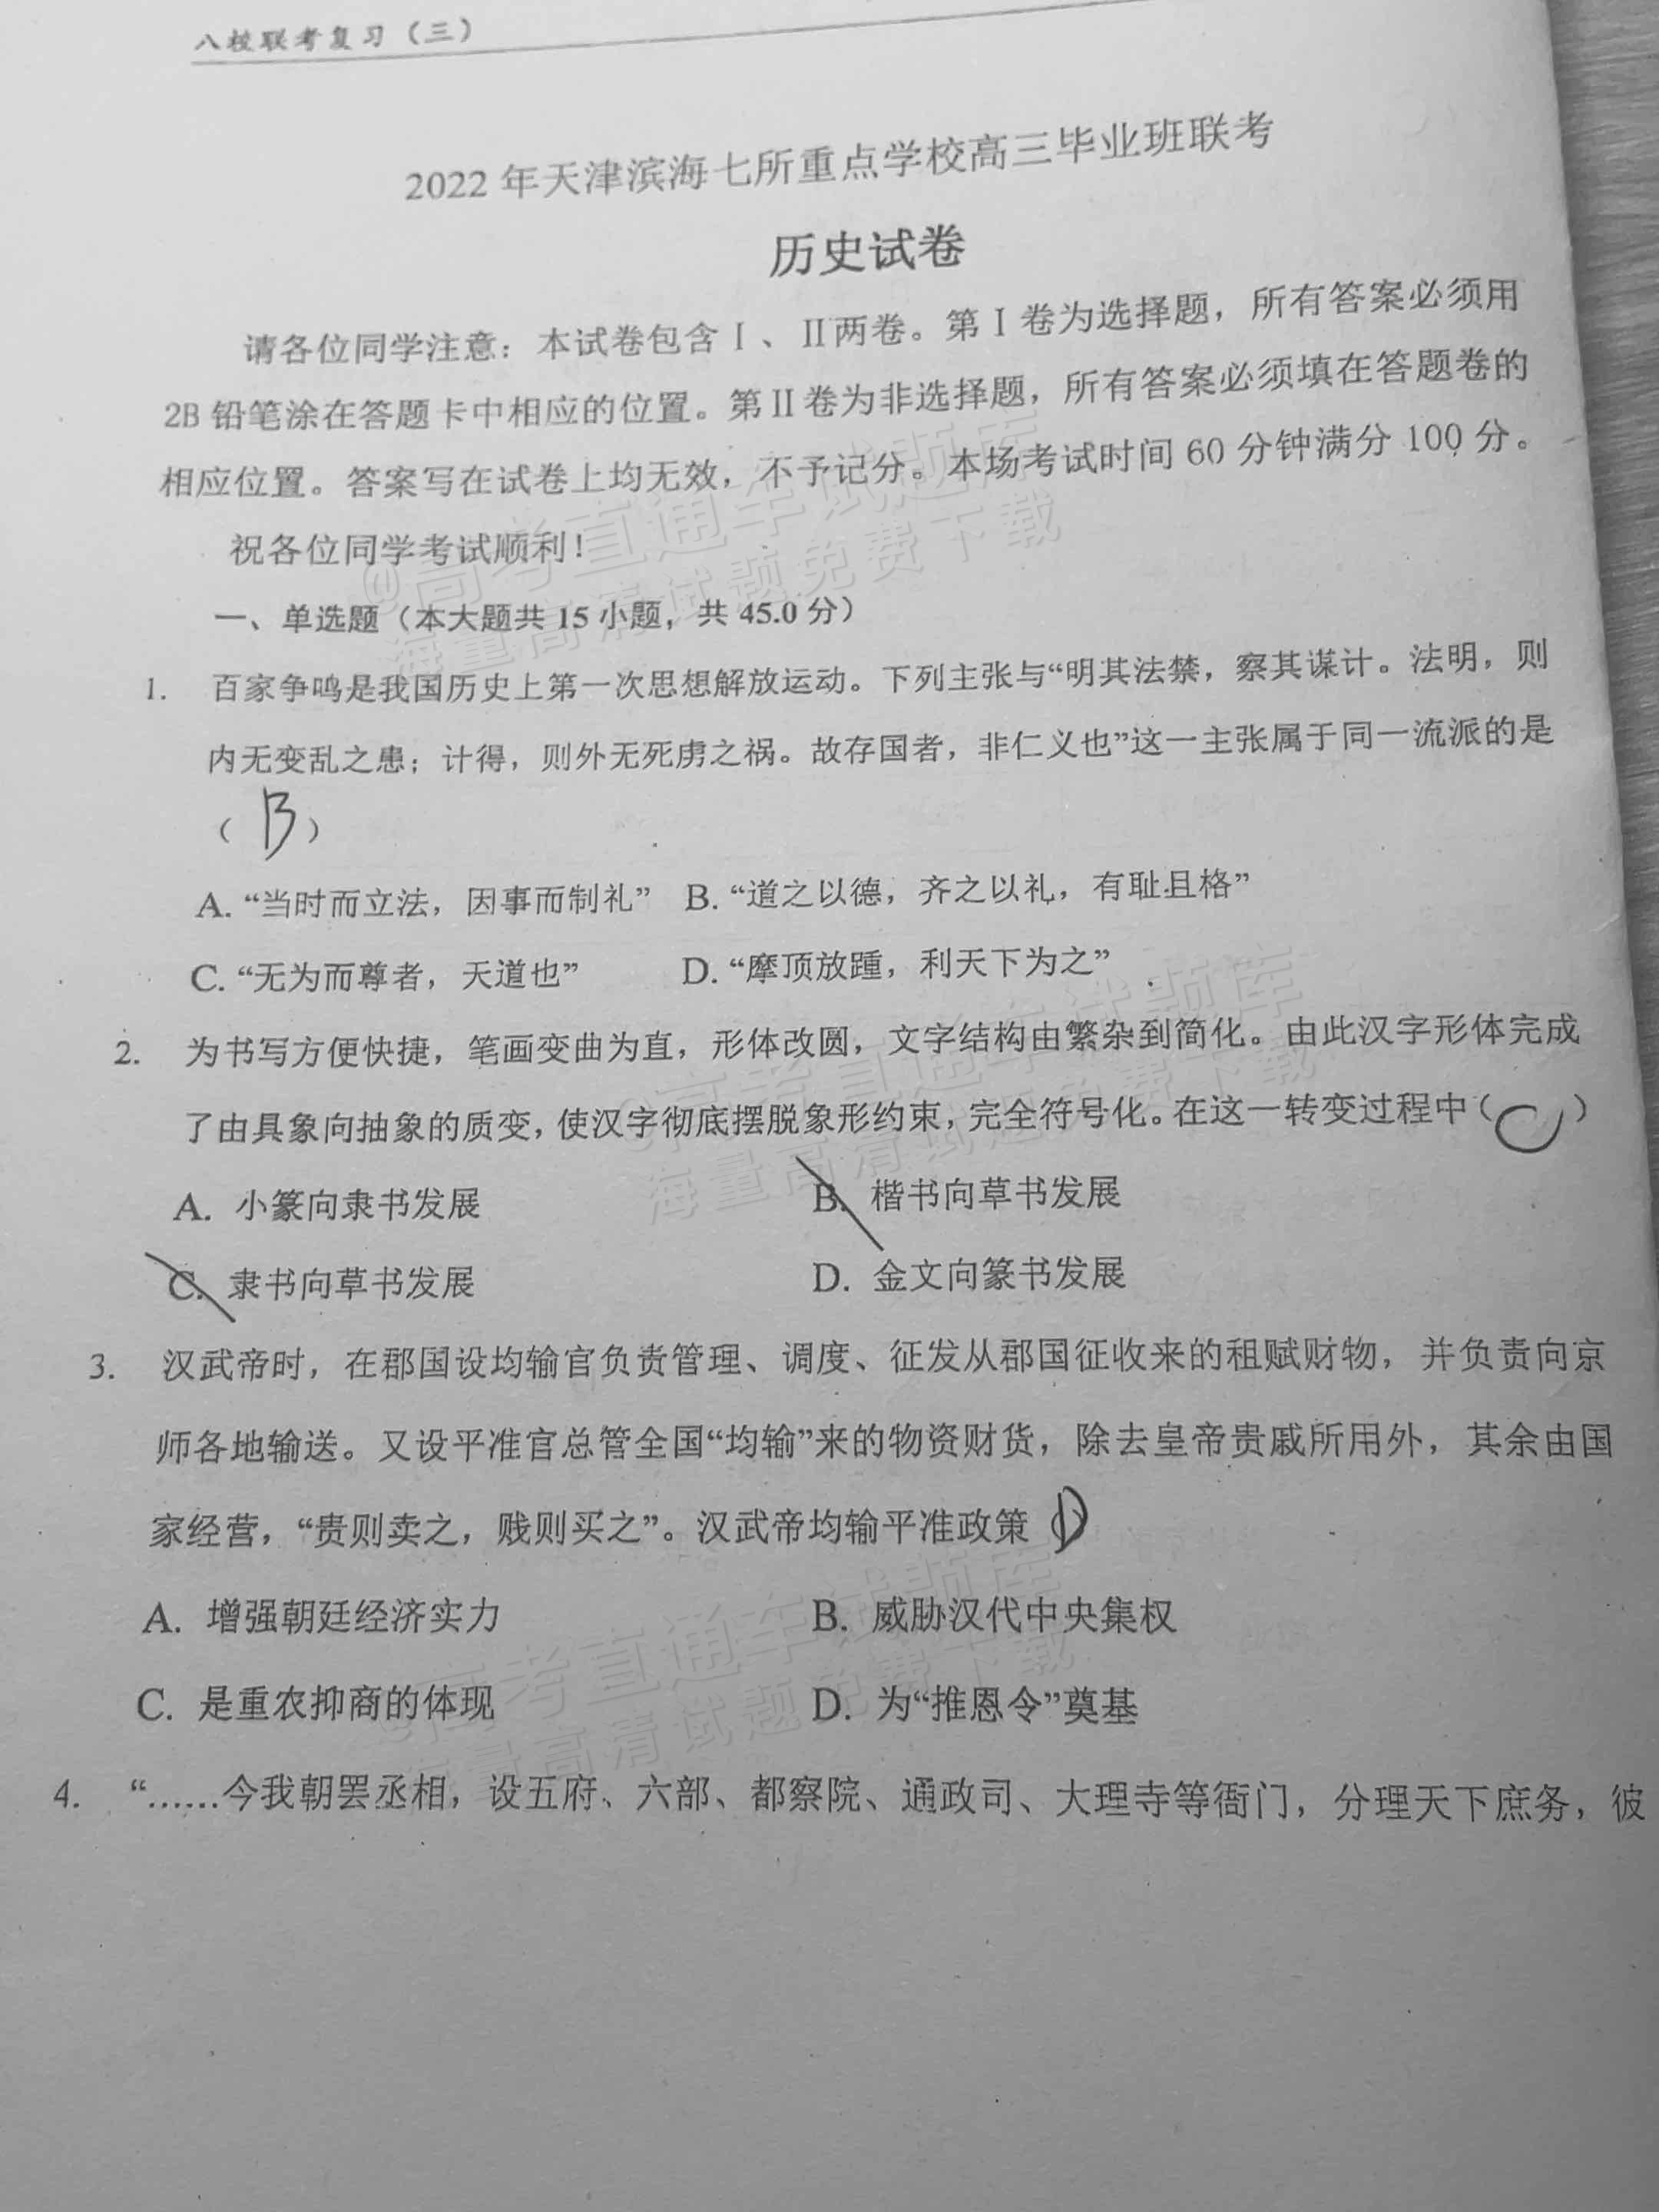 八校联考复习（三）
2022年天津滨海七所重点学校高三毕业班联考
历史试卷
请各位同学注意：本试卷包含Ⅰ、Ⅱ两卷。第Ⅰ卷为选择题，所有答案必须用
2B铅笔涂在答题卡中相应的位置。第Ⅱ卷为非选择题，所有答案必须填在答题卷的
相应位置。答案写在试卷上均无效，不予记分。本场考试时间60分钟满分100分。
祝各位同学考试顺利！
一、单选题（本大题共15小题，共45.0分）
1. 百家争鸣是我国历史上第一次思想解放运动。下列主张与“明其法禁，察其谋计。法明，则
内无变乱之患；计得，则外无死虏之祸。故存国者，非仁义也”这一主张属于同一流派的是
（B）
A. “当时而立法，因事而制礼” B. “道之以德，齐之以礼，有耻且格”
C. “无为而尊者，天道也” D. “摩顶放踵，利天下为之”
2. 为书写方便快捷，笔画变曲为直，形体改圆，文字结构由繁杂到简化。由此汉字形体完成
了由具象向抽象的质变，使汉字彻底摆脱象形约束，完全符号化。在这一转变过程中（C）
A. 小篆向隶书发展 B. 楷书向草书发展
C. 隶书向草书发展 D. 金文向篆书发展
3. 汉武帝时，在郡国设均输官负责管理、调度、征发从郡国征收来的租赋财物，并负责向京
师各地输送。又设平准官总管全国“均输”来的物资财货，除去皇帝贵戚所用外，其余由国
家经营，“贵则卖之，贱则买之”。汉武帝均输平准政策 D
A. 增强朝廷经济实力 B. 威胁汉代中央集权
C. 是重农抑商的体现 D. 为“推恩令”奠基
4. “……今我朝罢丞相，设五府、六部、都察院、通政司、大理寺等衙门，分理天下庶务，彼
@高考直通车试题库
海量高清试题免费下载
@高考直通车试题库
海量高清试题免费下载
@高考直通车试题库
海量高清试题免费下载